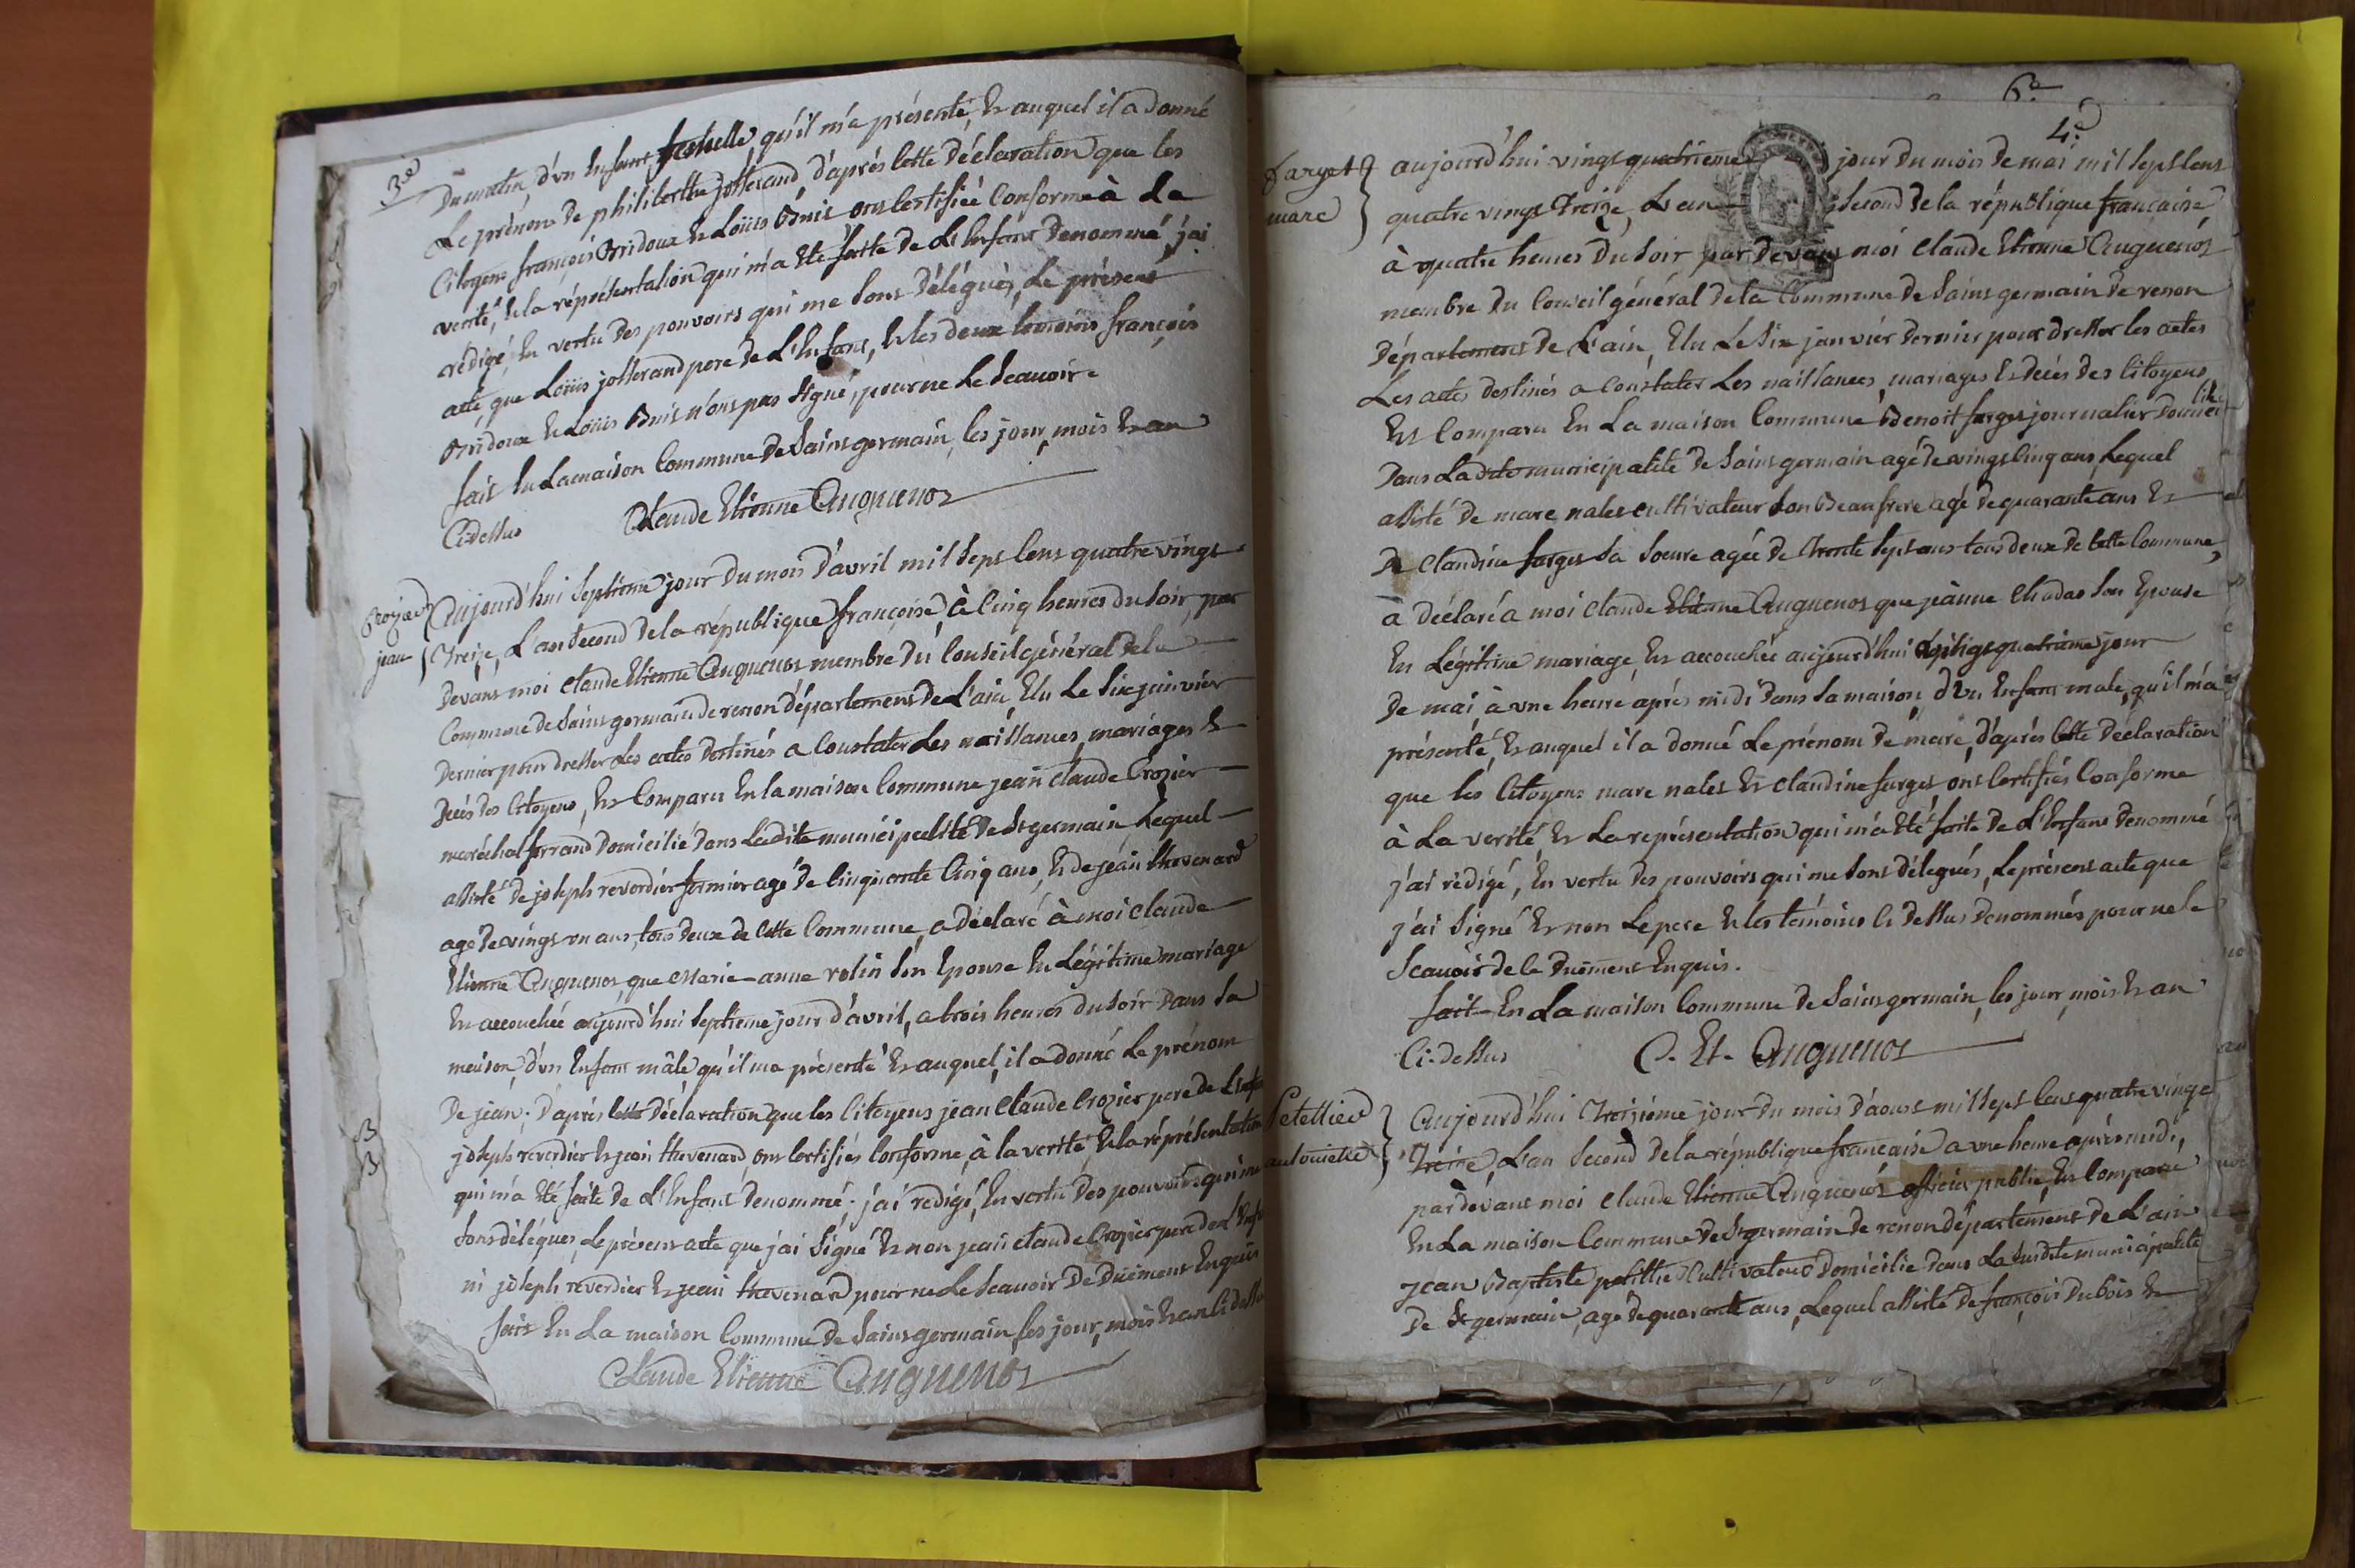 3e
Du matin, d'un Enfant femelle, qu'il m'a présenté, Et auquel il a donné
Le prénom de philiberthe jotterand, d'après Cette Déclaration que les
Citoyens françois Bridoux Et Loüis Bnis ont Certifiée Conforme à La
verité, Et la réprésentation qui m'a Eté faite de L'Enfant Denommé j'ai
rédigé, En vertu Des pouvoirs qui me sont Délégués, Le présent
acte, que Loüis jotterand pere de L'Enfant, Et les deux temoins françois
Bridoux Et Loüis Bnis n'ont pas signé, pour ne Le Scavoir.
fait En La maison Commune De Saint germain, les jour, mois Et an
Ci-dessus Claude Etienne Anguenos
Crozier
jean
Aujourd'hui Septieme jour Du mois D'avril mil Sept Cent quatre vingt
Treize, L'an second De la république françoise, à Cinq heures du Soir, par
Devant moi Claude Etienne Anguenos membre Du Conseil général De la
Commune De Saint germain de renon Département De L'ain, Elu Le Six janvier
Dernier pour Dresser Les actes Destinés a Constater Les naissances, mariages Et
Décès Des Citoyens, Est Comparu En la maison Commune jean Claude Crozier
maréchal ferrand Domicilié Dans Ladite municipalité De St germain Lequel
assisté De joseph reverdier fermier agé De Cinquante Cinq ans, Et De jean thevenard
agé De vingt un ans, tous Deux de Cette Commune, a Déclaré à moi Claude
Etienne Anguenos, que Marie-anne rolin Son Epouse En Légitime mariage
Est accouchée aujourd'hui Septieme jour D'avril, a trois heures du Soir Dans Sa
maison, D'un Enfant mâle, qu'il ma présenté Et auquel, il a donné Le prénom
De jean; D'après Cette Déclaration que les Citoyens jean Claude Crozier pere de L'enfant
joseph reverdier Et jean thevenard, ont Certifiés Conforme, à la verité, Et la réprésentation
qui m'a Eté faite de L'Enfant Denommé; j'ai redigé, En vertu Des pouvoirs qui me
Sont délégués, Le présent acte que j'ai Signé Et non jean Claude Crozier pere de L'Enfant
ni joseph reverdier Et jean thevenard pour ne Le Scavoir De Duëment Enquis
fait En La maison Commune de Saint germain, les jour, mois Et an Ci dessus
Claude Etienne Anguenos
6e
4e
farget
marc
aujourd'hui vingt quatrieme jour Du mois De mai mil Sept Cent
quatre vingt Treize, L'an Second De la république francaise
à quatre heures Du Soir par Devant moi Claude Etienne Anguenos
membre Du Conseil général De la Commune De Saint germain De renon
Département De L'ain, Elu Le Six janvier Dernier pour dresser les actes
Les actes Destinés a Constater Les naissances, mariages Et Décès Des Citoyens
Est Comparu En La maison Commune Benoit farget journalier Domicilié
Dans Ladite municipalité De Saint germain agé De vingt Cinq ans, Lequel
assisté De marc nalet cultivateur Son Beau frere agé De quarante ans Et
De Claudine farget Sa Soeure agée De Trente Sept ans tous deux de Cette Commune,
a Déclaré a moi Claude Etienne Anguenos que jeanne Chadas Son Epouse
En Légitime mariage, Est accouchée aujourd'hui Vingt quatrieme jour
De mai, à une heure après midi Dans Sa maison, d'un Enfant male, qu'il m'a
présenté, Et auquel il a donné Le prénom De marc, d'après Cette Déclaration
que les Citoyens marc nalet Et Claudine farget ont Certifiés Conforme
à La verité Et La représentation qui m'a Eté faite De L'Enfant Denommé
j'ai rédigé, En vertu Des pouvoirs qui me Sont délégués, Le présent acte que
j'ai Signé Et non Le pere Et les témoins Ci Dessus Denommés pour ne Le
Scavoir de Ce Duëment Enquis.
fait En La maison Commune de Saint germain, les jour, mois Et an
Ci-dessus C. Et. Anguenos
Petellier
antoinette
Aujourd'hui Treizième jour Du mois D'aout mil Sept Cent quatre vingt
Treize, L'an Second De la république francaise a une heure après midi,
par devant moi Claude Etienne Anguenos officier public, Est Comparu
En La maison Commune De St germain de renon Département De L'ain
jean Baptiste petellier Cultivateur Domicilié Dans La Susdite municipalité
De St germain, agé de quarante ans, Lequel assisté De françois Dubois Et